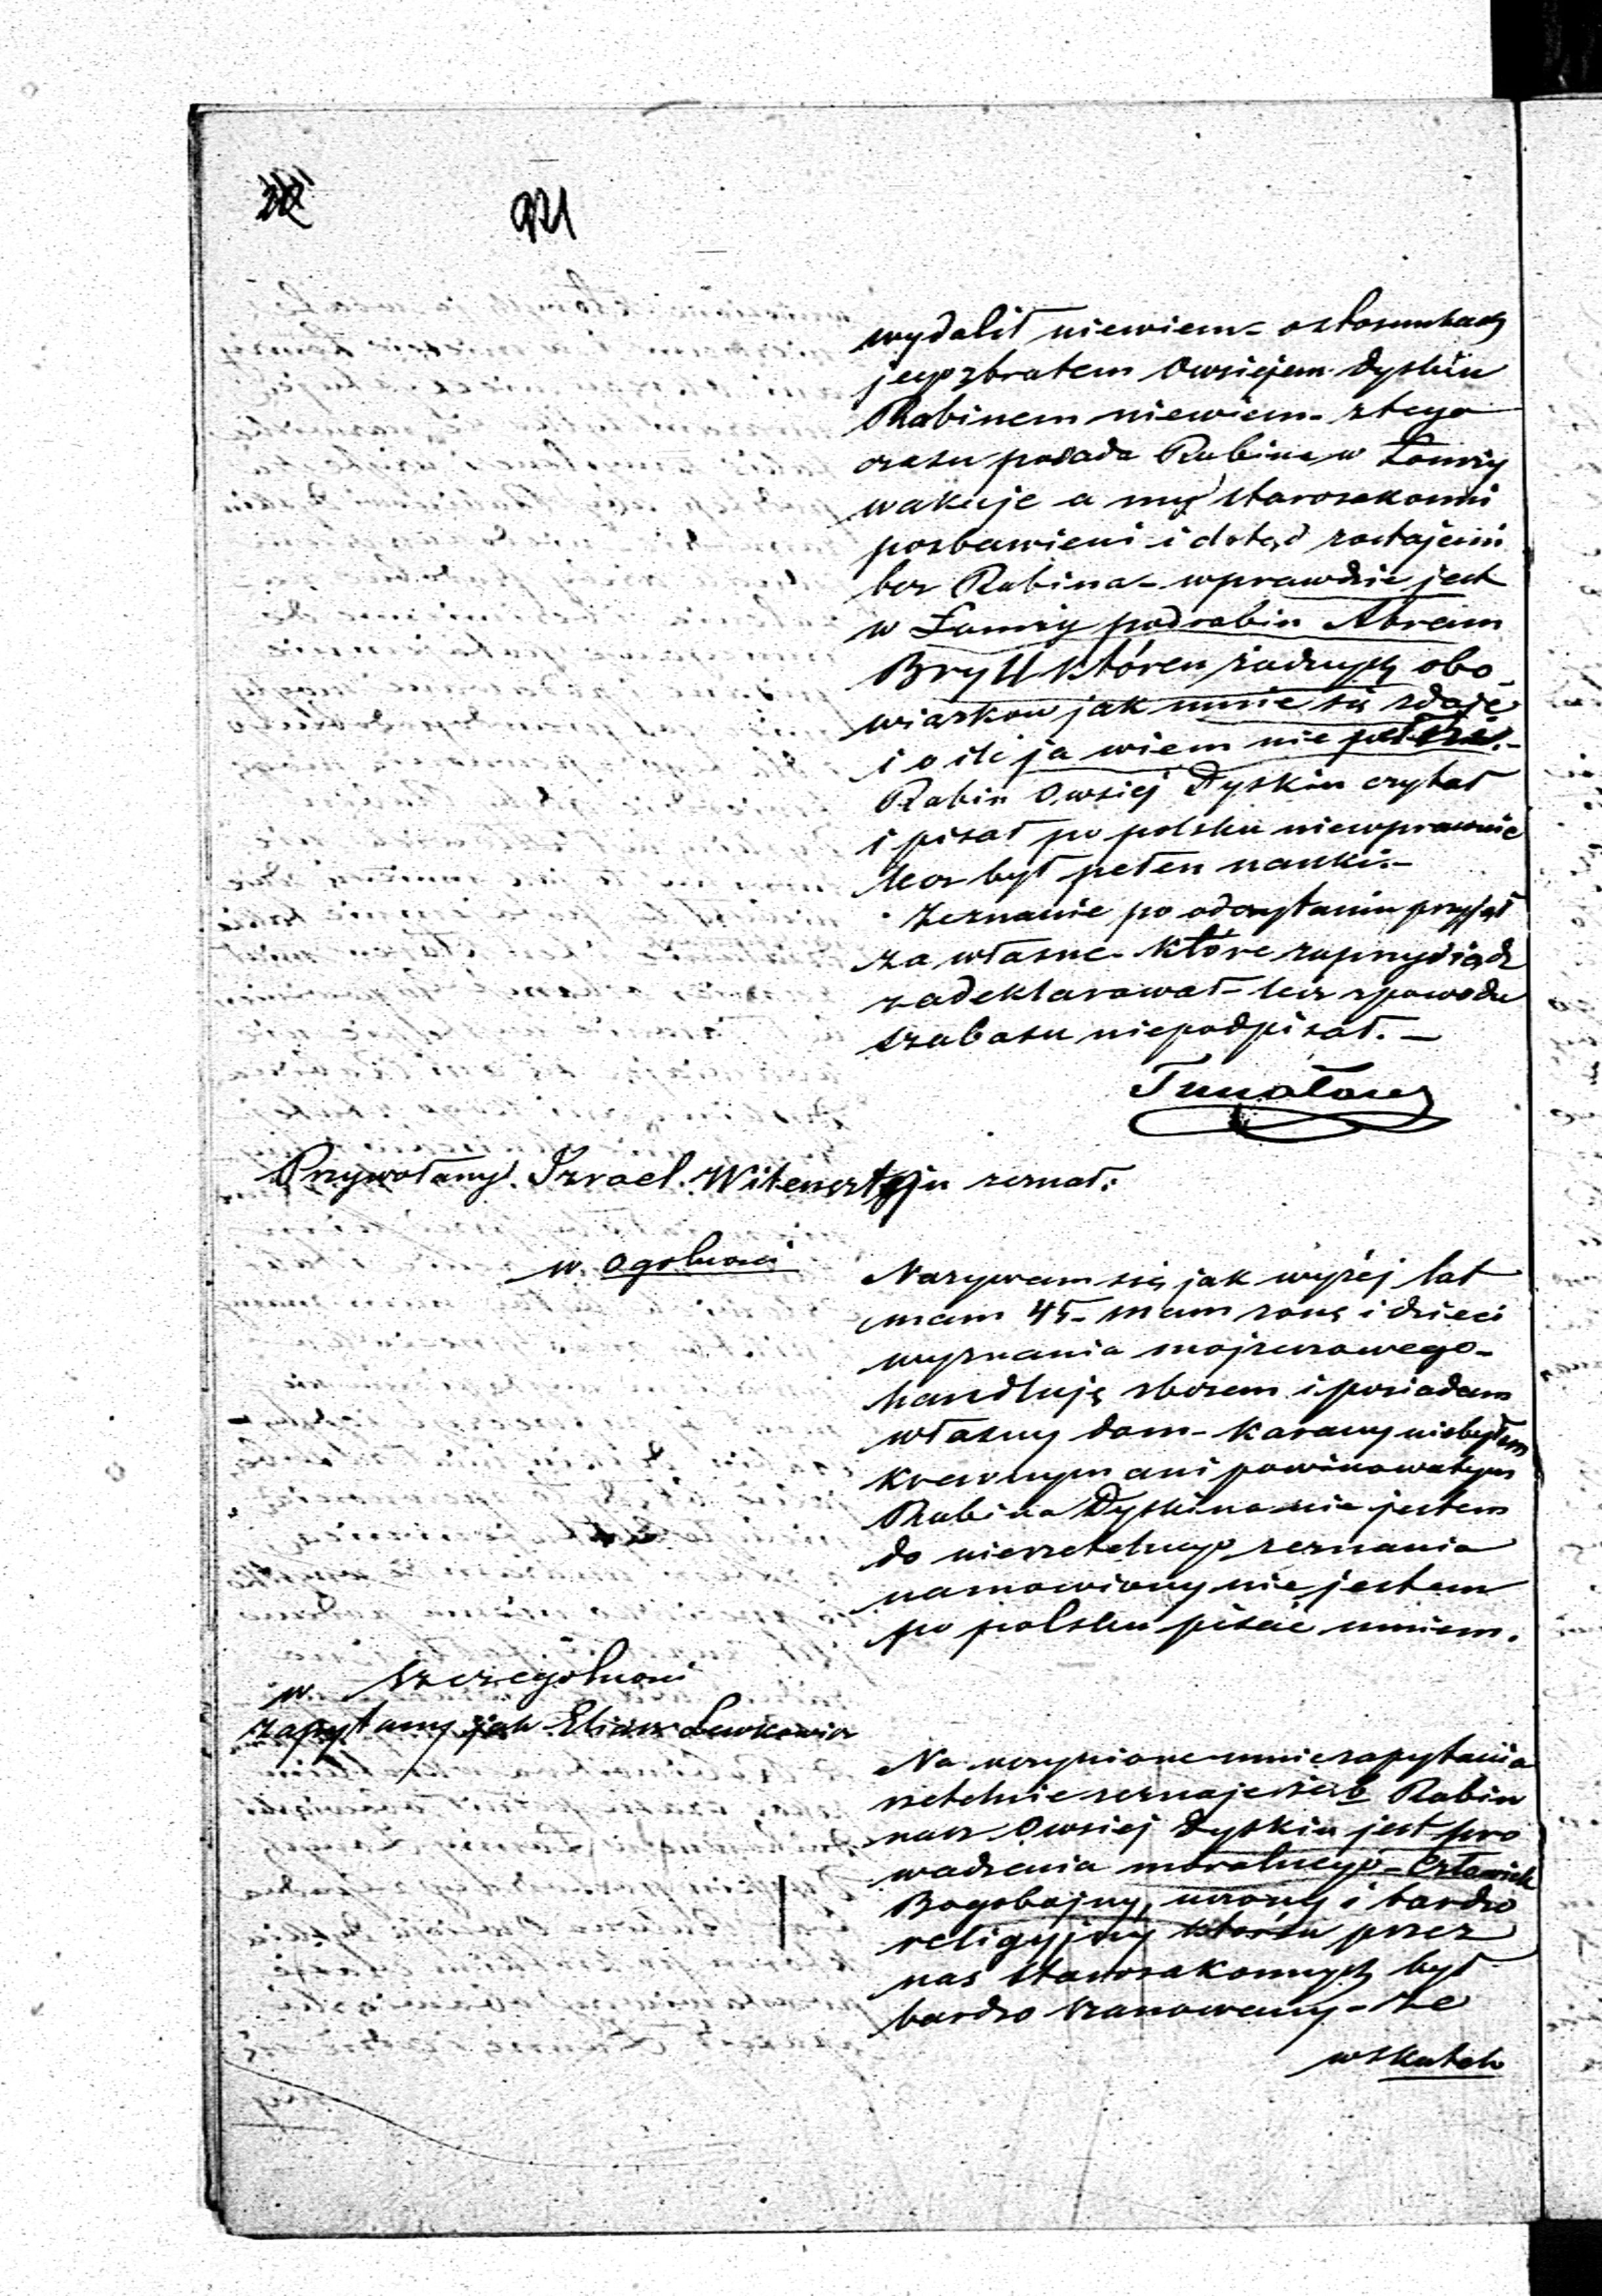 921
wydalił niewiem – ostosunkach
jego zbratem Owsiejem Dyskin
Rabinem niewiem – ztego
czasu posada Rabina w Łomży
wakuje a my starozakonni
pozbawieni i dotąd zostajemi
bez Rabina – wprawdzie jest
w Łomży podrabin Abram
Bryll któren żadnych obo-
wiazkow jak mnie się zdaje
i o ile ja wiem nie pełni. –
Rabin Owsiej Dyskin czytał
i pisał po polsku niewprawnie
lecz był pełen nauki. –
Zeznanie po odczytaniu przyjął
za własne – które zaprzysiądz
zadeklarował – lecz zpowodu
szabasu niepodpisał. –
Przywołany Izrael zeznał:
w Ogolnosci
Nazywam się jak wyżej lat
mam 45 – mam zonę i dzieci
wyznania mojzeszowego –
handluję zbozem i posiadam
własny dom – karany niebyłem
krewnym ani powinowatym
Rabina Dyskina nie jestem
do nierzetelnego zeznania
namowiony nie jestem
po polsku pisać umiem.
w Szczegolnosci
zapytany jak Eliasz Lewkowicz
Na uczynione mnie zapytania
rzetelnie zeznaje że b Rabin
nasz Owsiej Dyskin jest pro
wadzenia moralnego – Człowiek
Bogobojny, uczony i bardzo
religyjny któren przez
nas starozakonnych był
bardzo szanowany – że
wskutek